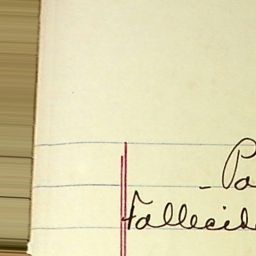 - Pa
Fallecid